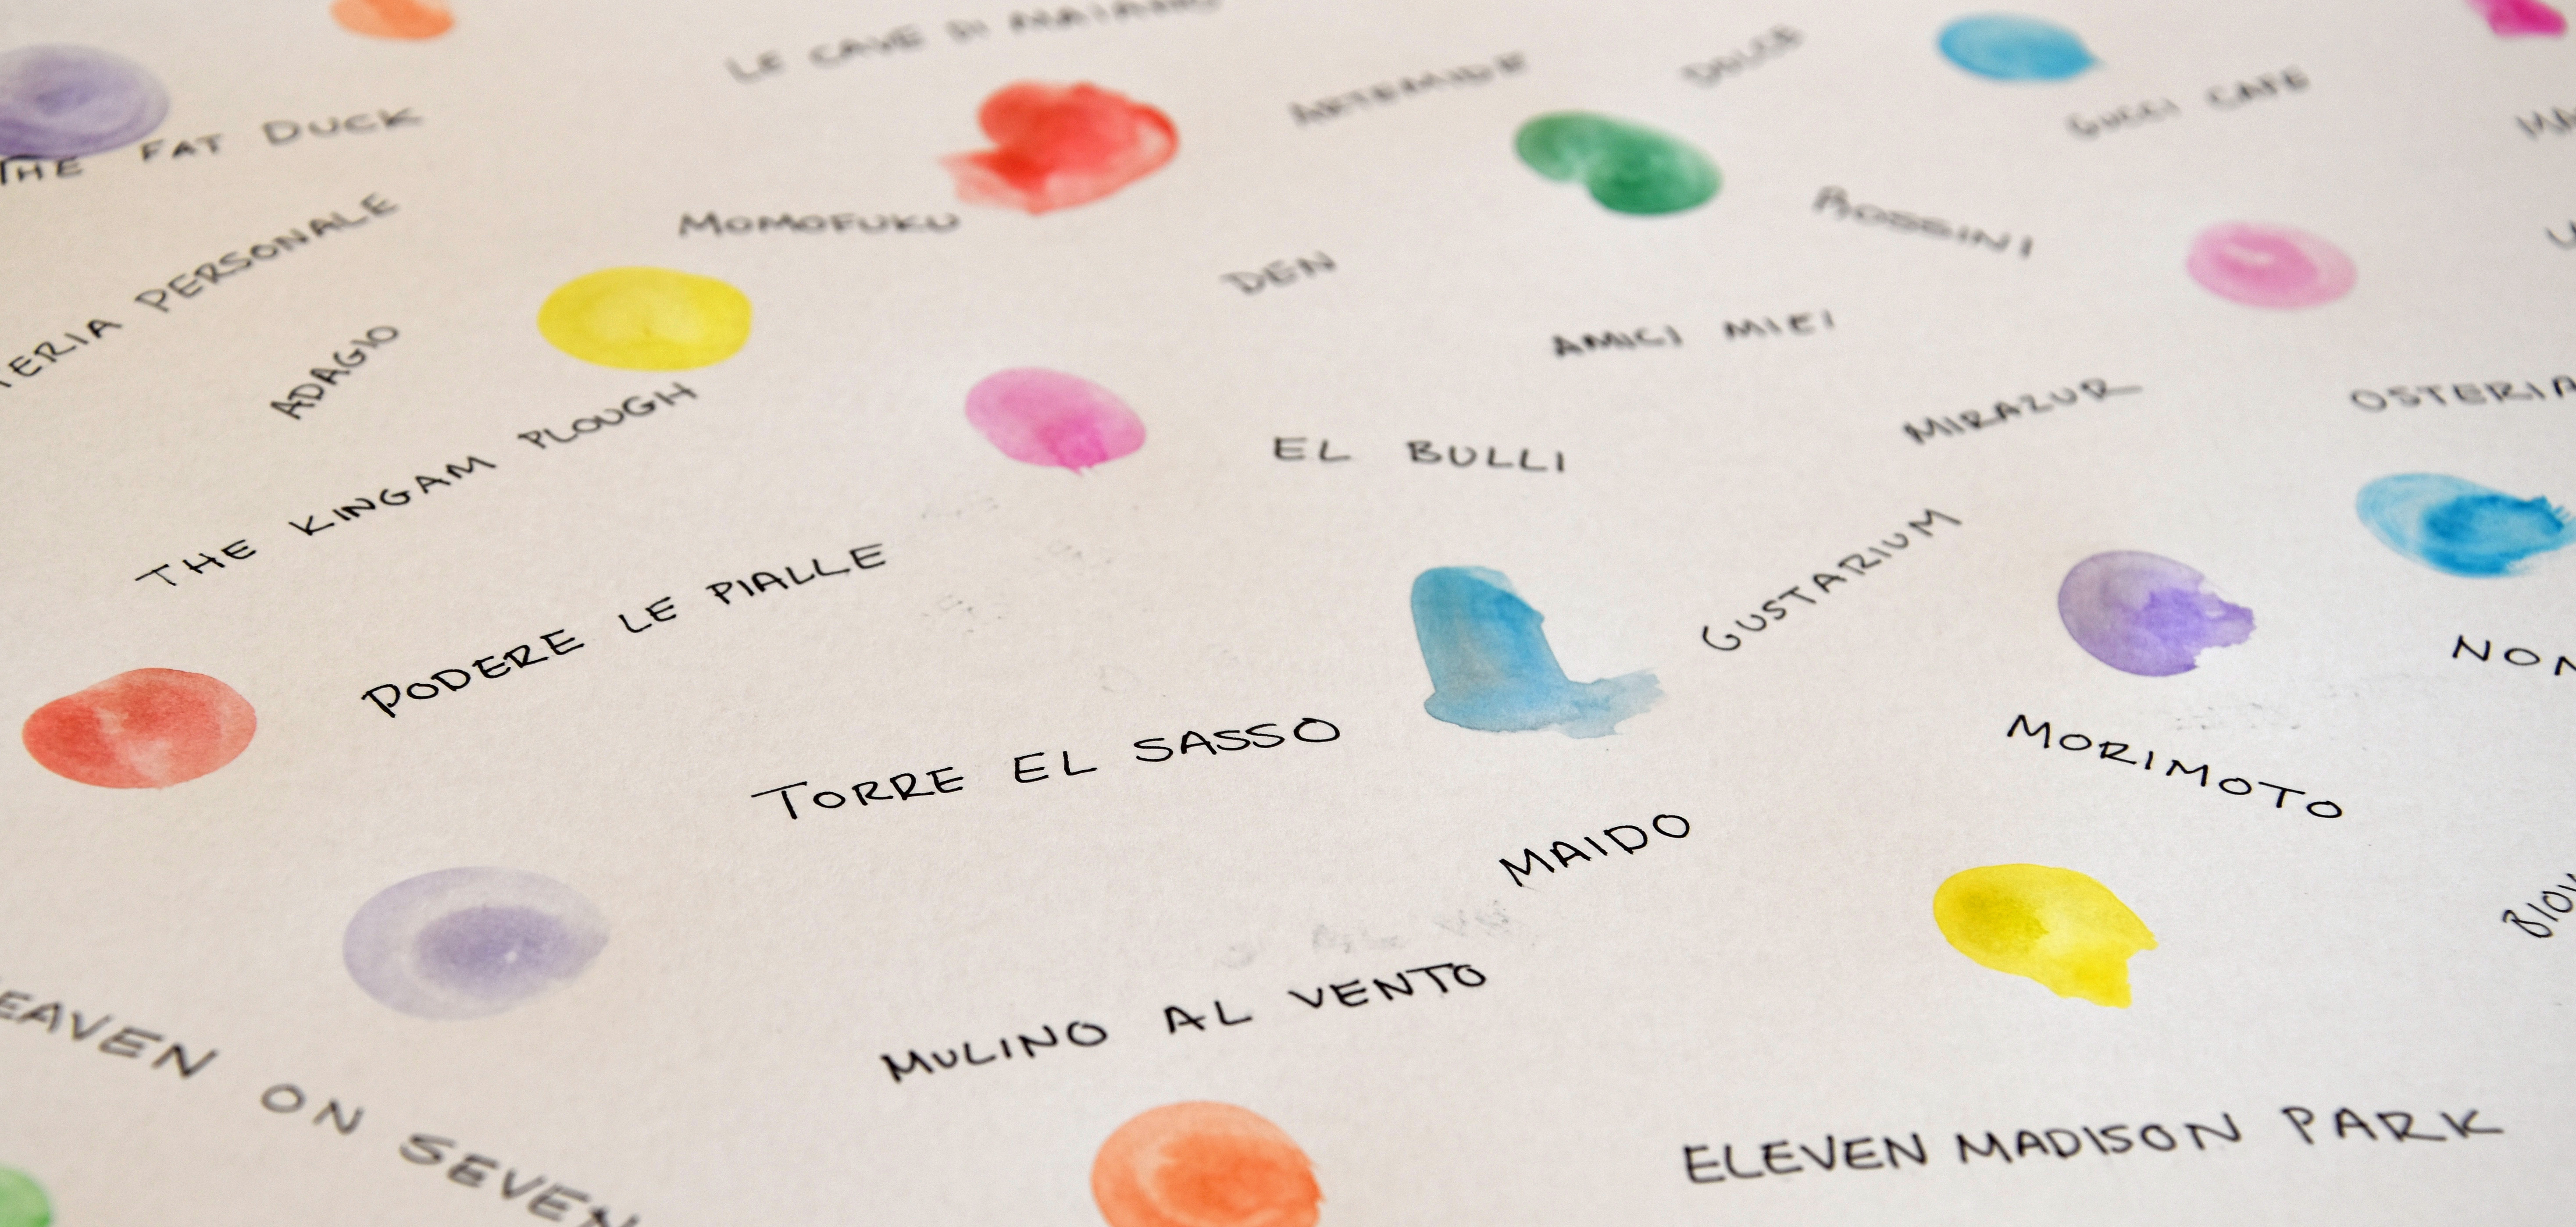 LE CAVE DI MAIANO
THE FAT DUCK
ARTEMIDE
DOLCE
GUCCI CAFE
MA
TERIA PERSONALE
MOMOFUKU
ROSSINI
DEN
ADAGIO
AMICI MIEI
THE KINGAM PLOUGH
EL BULLI
MIRAZUR
OSTERIA
PODERE LE PIALLE
GUSTARIUM
NON
TORRE EL SASSO
MORIMOTO
MAIDO
BION
MULINO AL VENTO
EAVEN ON SEVEN
ELEVEN MADISON PARK